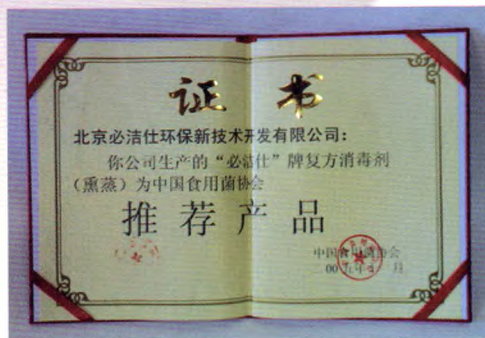 证书
北京必洁仕环保新技术开发有限公司：
你公司生产的“必洁仕”牌复方消毒剂
（熏蒸）为中国食用菌协会
推荐产品
中国食用菌协会
二00五年 月